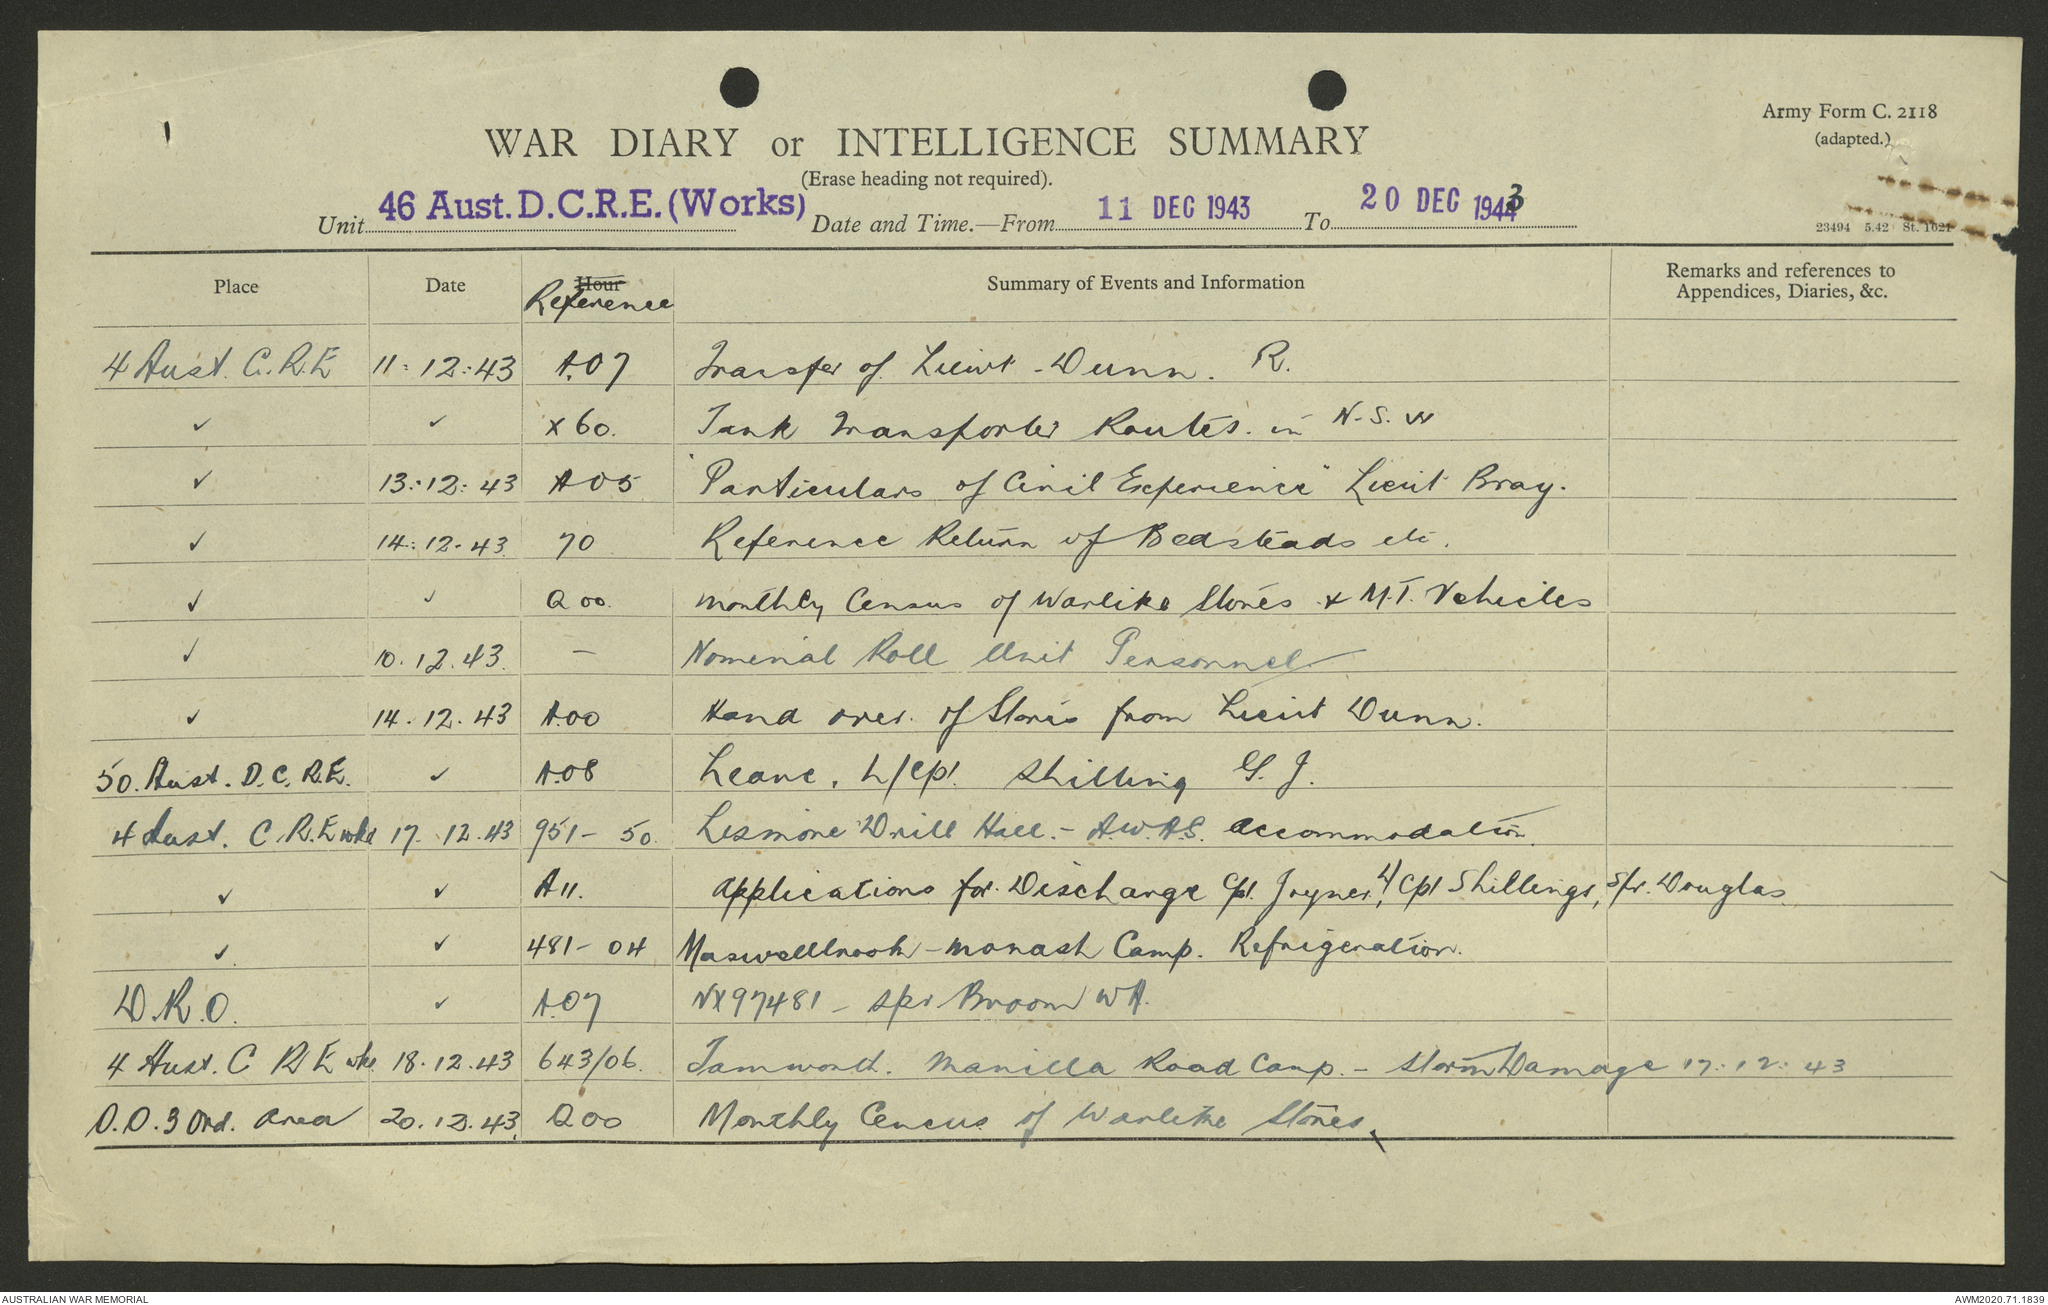 Army Form C. 2118
(adapted.)
WAR DIARY or INTELLIGENCE SUMMARY
(Erase heading not required).
Unit 46 Aust. D.C.R.E. (Works) Date and Time.—From 11 DEC 1943 To 20 DEC 1943
23494 5.42 St. 1621
Place Date Hour Reference Summary of Events and Information Remarks and references to Appendices, Diaries, &c.
4 Aust. C.R.E 11:12:43 A.07 Transfer of Lieut - Dunn. R.
✓ ✓ X60. Tank Transporter Routes. in N.S.W
✓ 13:12:43 A05 "Particulars of Civil Experience" Lieut Bray.
✓ 14:12.43 70 Reference Return of Bedsteads etc.
✓ ✓ Q00. Monthly Census of Warlike Stores & M.T. Vehicles
✓ 10.12.43. — Nominal Roll Unit Personnel
✓ 14.12.43 A.00 Hand over. of Stores from Lieut Dunn.
50. Aust. D.C.R.E. ✓ A.08 Leave, L/Cpl. Shilling G.J.
4 Aust. C.R.E wks 17.12.43 951-50. Lismore Drill Hall. - A.W.A.S. Accommodation.
✓ ✓ A11. Applications for Discharge Cpl. Joyner, L/Cpl Shillings, Spr. Douglas.
✓ ✓ 481-04 Muswellbrook - Monash Camp. Refrigeration.
D.R.O. ✓ A.07 NX97481 - Spr Broom WA.
4 Aust. C R E wks 18.12.43 643/06. Tamworth. Manilla Road Camp. - Storm Damage 17:12:43
D.O. 3 Ord. Area 20.12.43. Q00 Monthly Census of Warlike Stores.
AUSTRALIAN WAR MEMORIAL AWM2020.71.1839